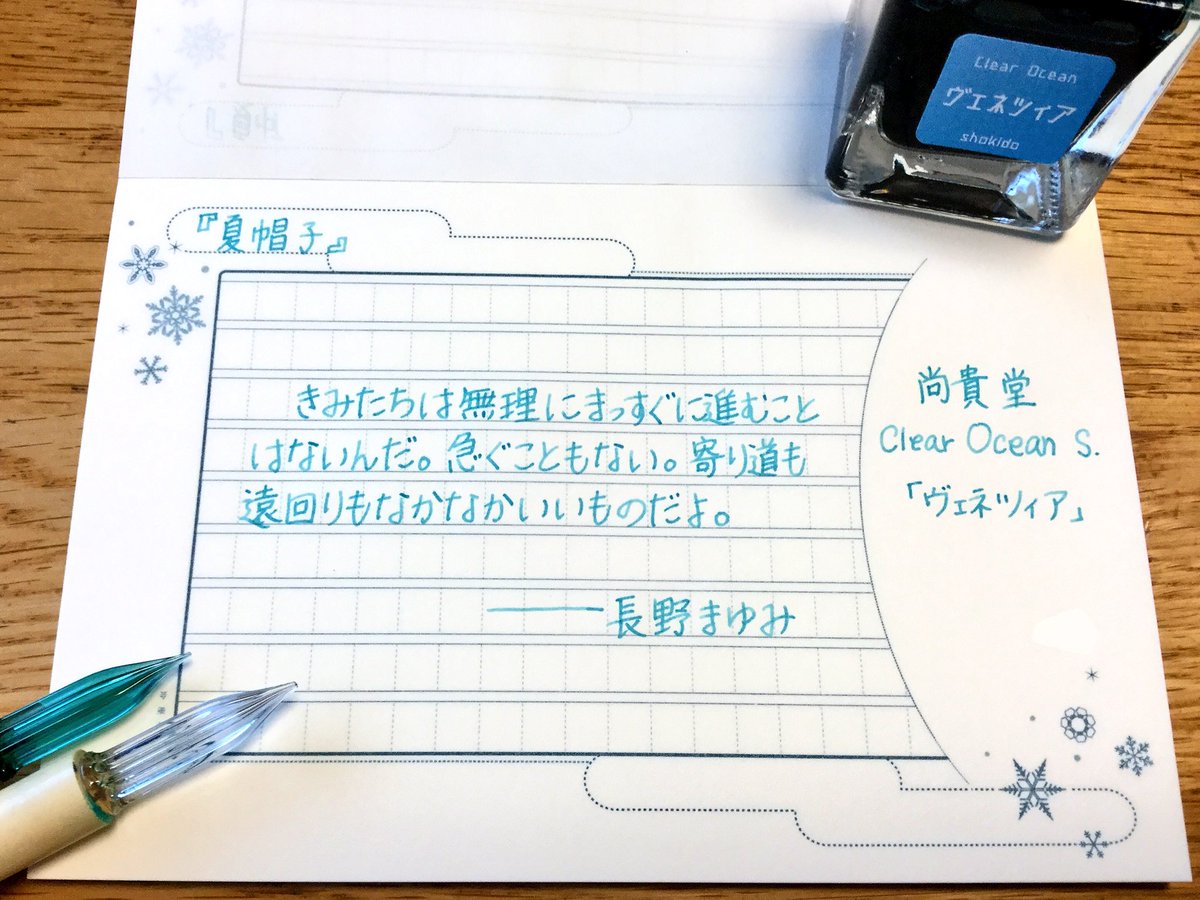 Clear Ocean
ヴェネツィア
shokido
『夏帽子』
きみたちは無理にまっすぐに進むこと
はないんだ。急ぐこともない。寄り道も
遠回りもなかなかいいものだよ。
――長野まゆみ
尚貴堂
Clear Ocean S.
「ヴェネツィア」